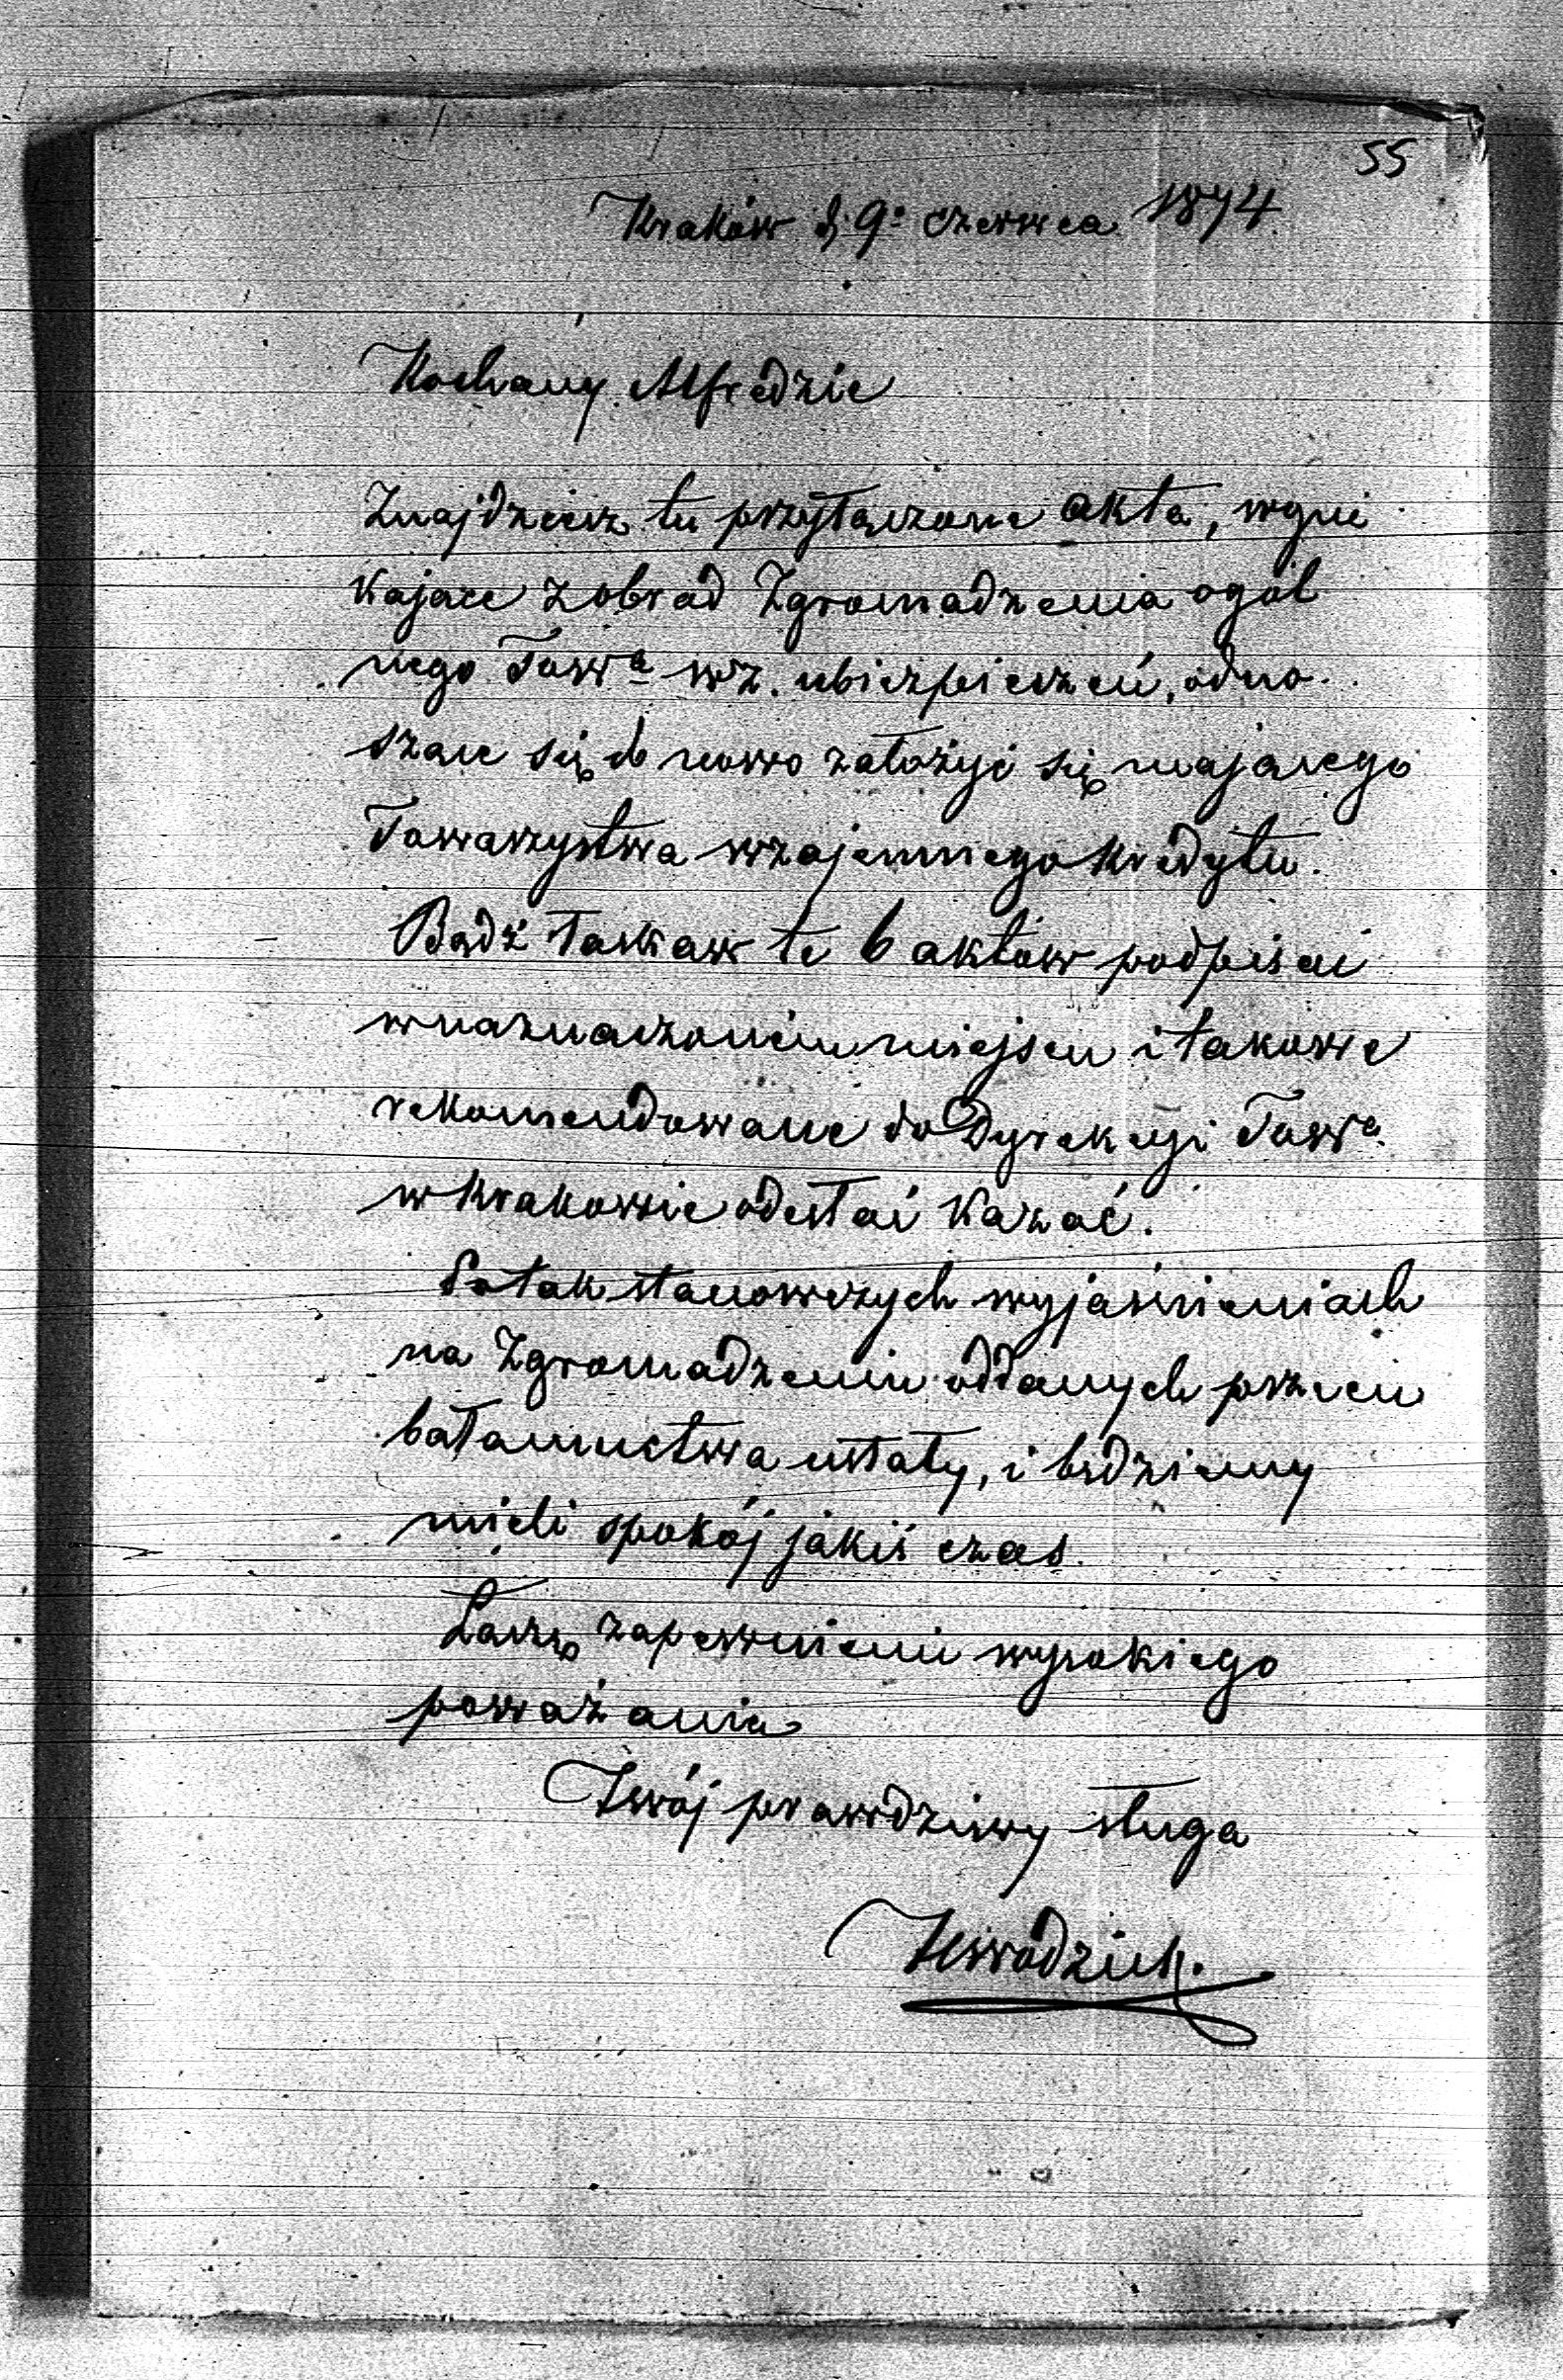 55
Kraków d. 9º czerwca 1874
Kochany Alfredzie
Znajdziesz tu przyłączone akta, wyni
kające z obrad Zgromadzenia ogól
nego Towª wz. ubiezpieczeń, odno
szące się do nowo założyć się mającego
Towarzystwa wzajemnego kredytu.
Bądź łaskaw te 6 aktów podpisać
w naznaczoném miejscu i takowe
rekomendowane do Dyrekcyi Towª
w Krakowie odesłać kazać.
Po tak stanowczych wyjaśnieniach
na Zgromadzeniu oddanych przecie
bałamuctwa ustały, i będziemy
mieli spokój jakiś czas.
Łączę zapewnienie wysokiego
poważania
Twój prawdziwy sługa
HWodzicki.